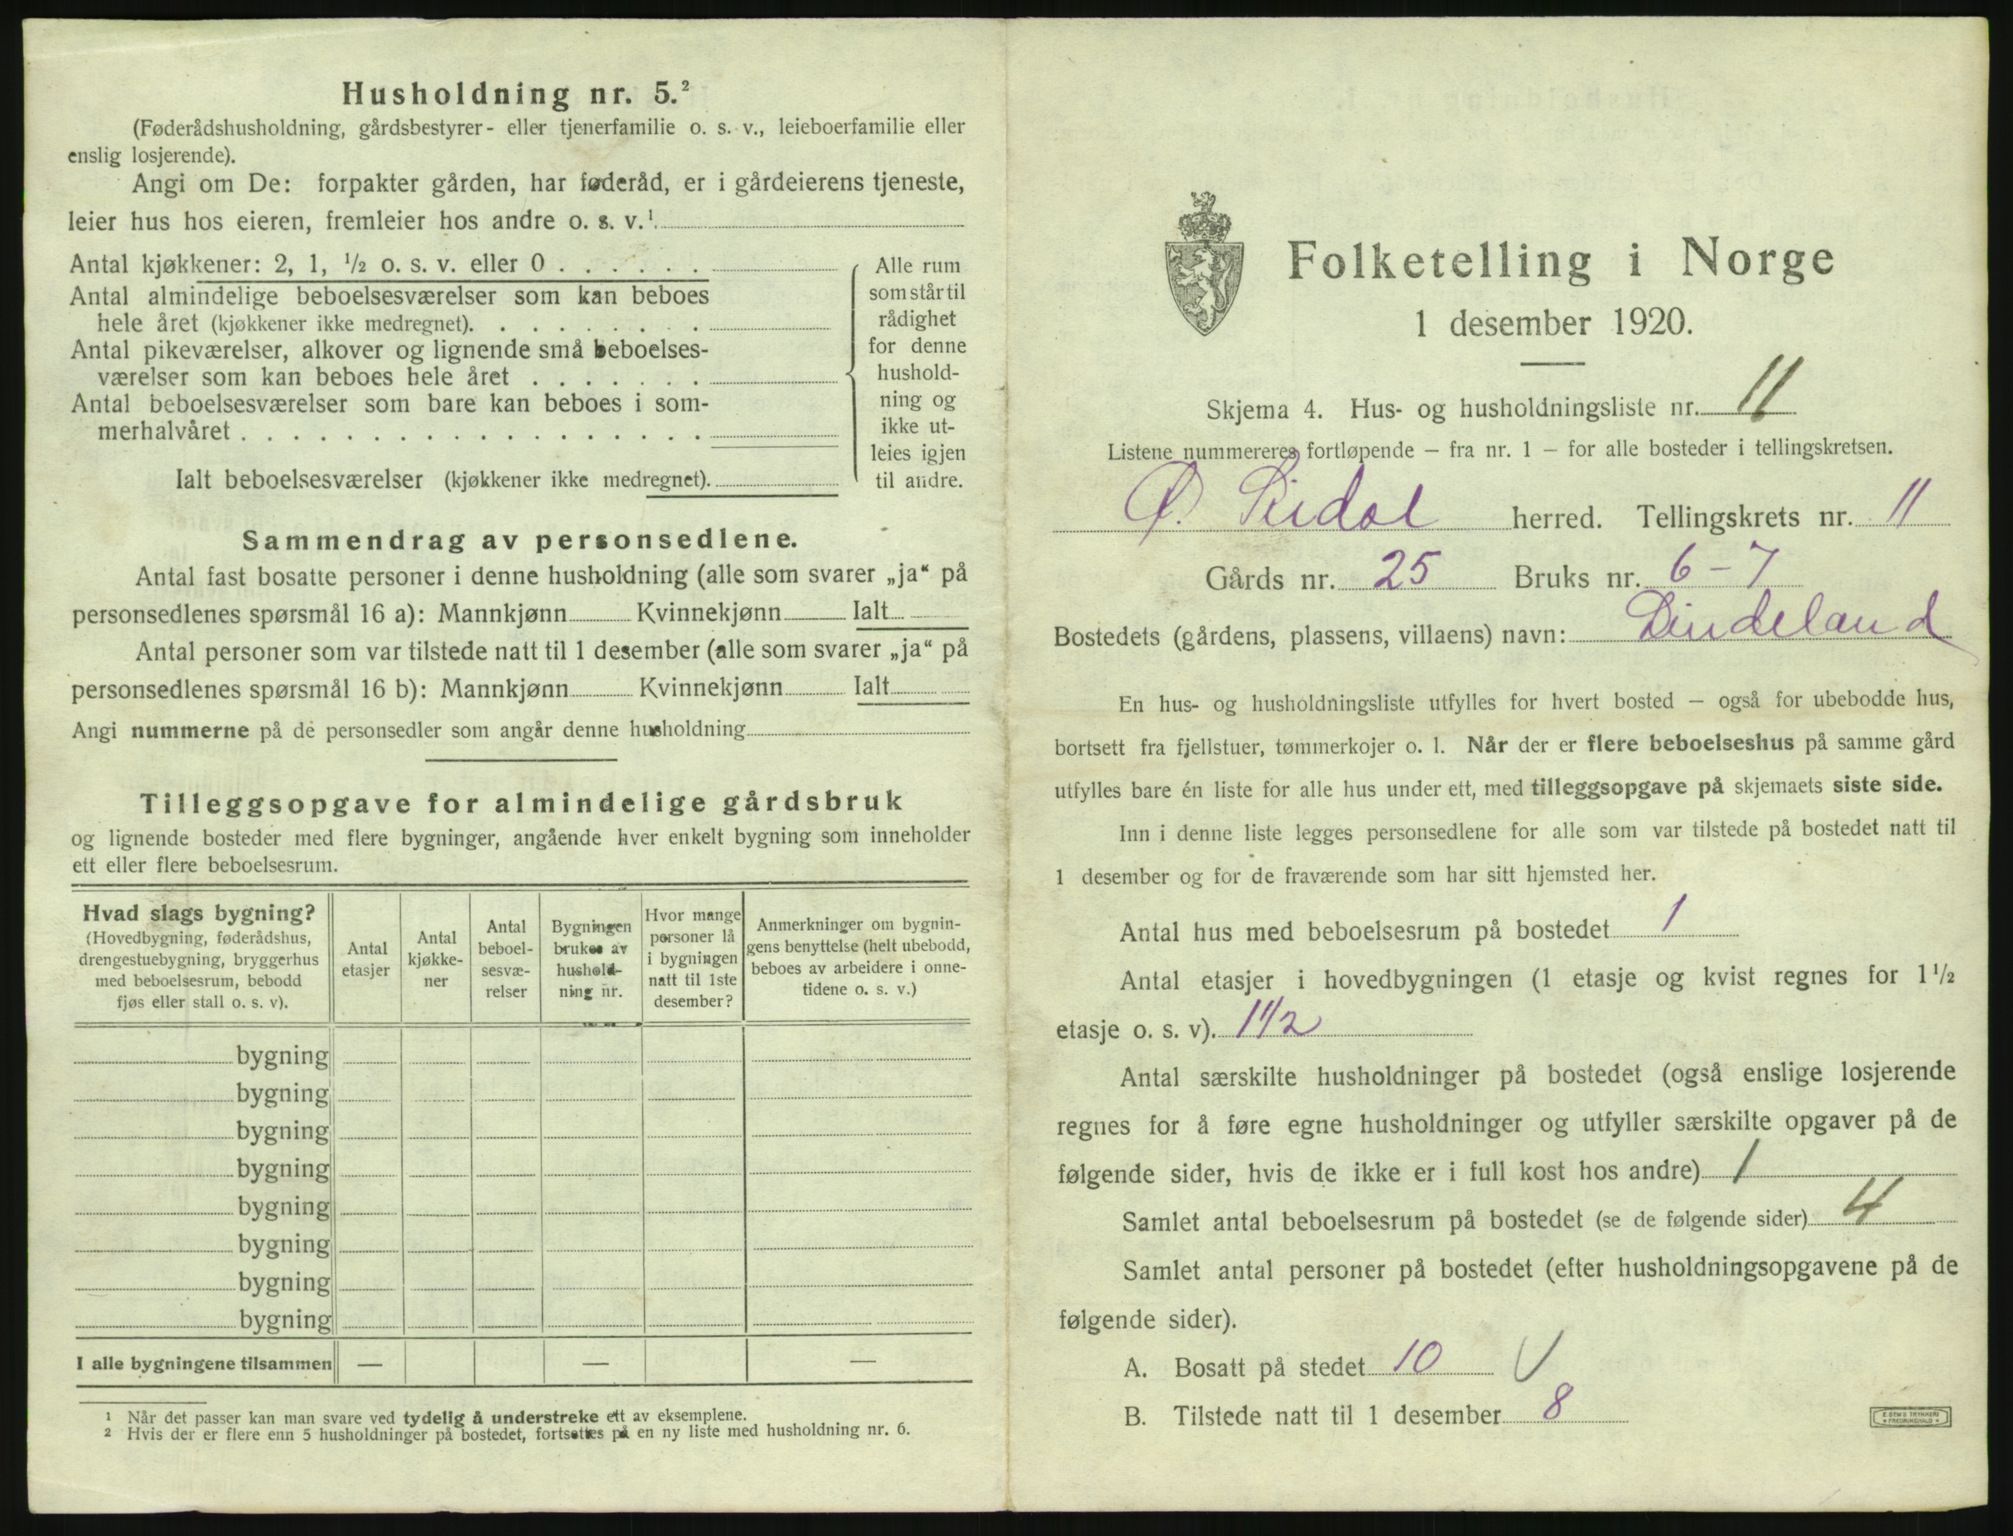 Husholdning nr. 5.²
(Føderådshusholdning, gårdsbestyrer- eller tjenerfamilie o. s. v., leieboerfamilie eller
enslig losjerende).
Angi om De: forpakter gården, har føderåd, er i gårdeierens tjeneste,
leier hus hos eieren, fremleier hos andre o. s. v.¹
Antal kjøkkener: 2, 1, ½ o. s. v. eller 0 . . . . . .
Antal almindelige beboelsesværelser som kan beboes
hele året (kjøkkener ikke medregnet). . . . . . . . .
Antal pikeværelser, alkover og lignende små beboelses-
værelser som kan beboes hele året . . . . . . .
Antal beboelsesværelser som bare kan beboes i som-
merhalvåret . . . . . . . . . . . . . . . . . .
Ialt beboelsesværelser (kjøkkener ikke medregnet).
Alle rum
som står til
rådighet
for denne
hushold-
ning og
ikke ut-
leies igjen
til andre.
Sammendrag av personsedlene.
Antal fast bosatte personer i denne husholdning (alle som svarer „ja“ på
personsedlenes spørsmål 16 a): Mannkjønn Kvinnekjønn Ialt
Antal personer som var tilstede natt til 1 desember (alle som svarer „ja“ på
personsedlenes spørsmål 16 b): Mannkjønn Kvinnekjønn Ialt
Angi nummerne på de personsedler som angår denne husholdning
Tilleggsopgave for almindelige gårdsbruk
og lignende bosteder med flere bygninger, angående hver enkelt bygning som inneholder
ett eller flere beboelsesrum.
Hvad slags bygning?
(Hovedbygning, føderådshus,
drengestuebygning, bryggerhus
med beboelsesrum, bebodd
fjøs eller stall o. s. v).
Antal
etasjer
Antal
kjøkke-
ner
Antal
beboel-
sesvæ-
relser
Bygningen
brukes av
hushold-
ning nr.
Hvor mange
personer lå
i bygningen
natt til 1ste
desember?
Anmerkninger om bygnin-
gens benyttelse (helt ubebodd,
beboes av arbeidere i onne-
tidene o. s. v.)
bygning
bygning
bygning
bygning
bygning
bygning
bygning
bygning
I alle bygningene tilsammen — — —
¹ Når det passer kan man svare ved tydelig å understreke ett av eksemplene.
² Hvis der er flere enn 5 husholdninger på bostedet, fortsettes på en ny liste med husholdning nr. 6.
Folketelling i Norge
1 desember 1920.
Skjema 4. Hus- og husholdningsliste nr. 11
Listene nummereres fortløpende – fra nr. 1 – for alle bosteder i tellingskretsen.
Ø. Sirdal herred. Tellingskrets nr. 11
Gårds nr. 25 Bruks nr. 6-7
Bostedets (gårdens, plassens, villaens) navn: Lindeland
En hus- og husholdningsliste utfylles for hvert bosted – også for ubebodde hus,
bortsett fra fjellstuer, tømmerkojer o. l. Når der er flere beboelseshus på samme gård
utfylles bare én liste for alle hus under ett, med tilleggsopgave på skjemaets siste side.
Inn i denne liste legges personsedlene for alle som var tilstede på bostedet natt til
1 desember og for de fraværende som har sitt hjemsted her.
Antal hus med beboelsesrum på bostedet 1
Antal etasjer i hovedbygningen (1 etasje og kvist regnes for 1½
etasje o. s. v). 1½
Antal særskilte husholdninger på bostedet (også enslige losjerende
regnes for å føre egne husholdninger og utfyller særskilte opgaver på de
følgende sider, hvis de ikke er i full kost hos andre) 1
Samlet antal beboelsesrum på bostedet (se de følgende sider) 4
Samlet antal personer på bostedet (efter husholdningsopgavene på de
følgende sider).
A. Bosatt på stedet 10 V
B. Tilstede natt til 1 desember 8